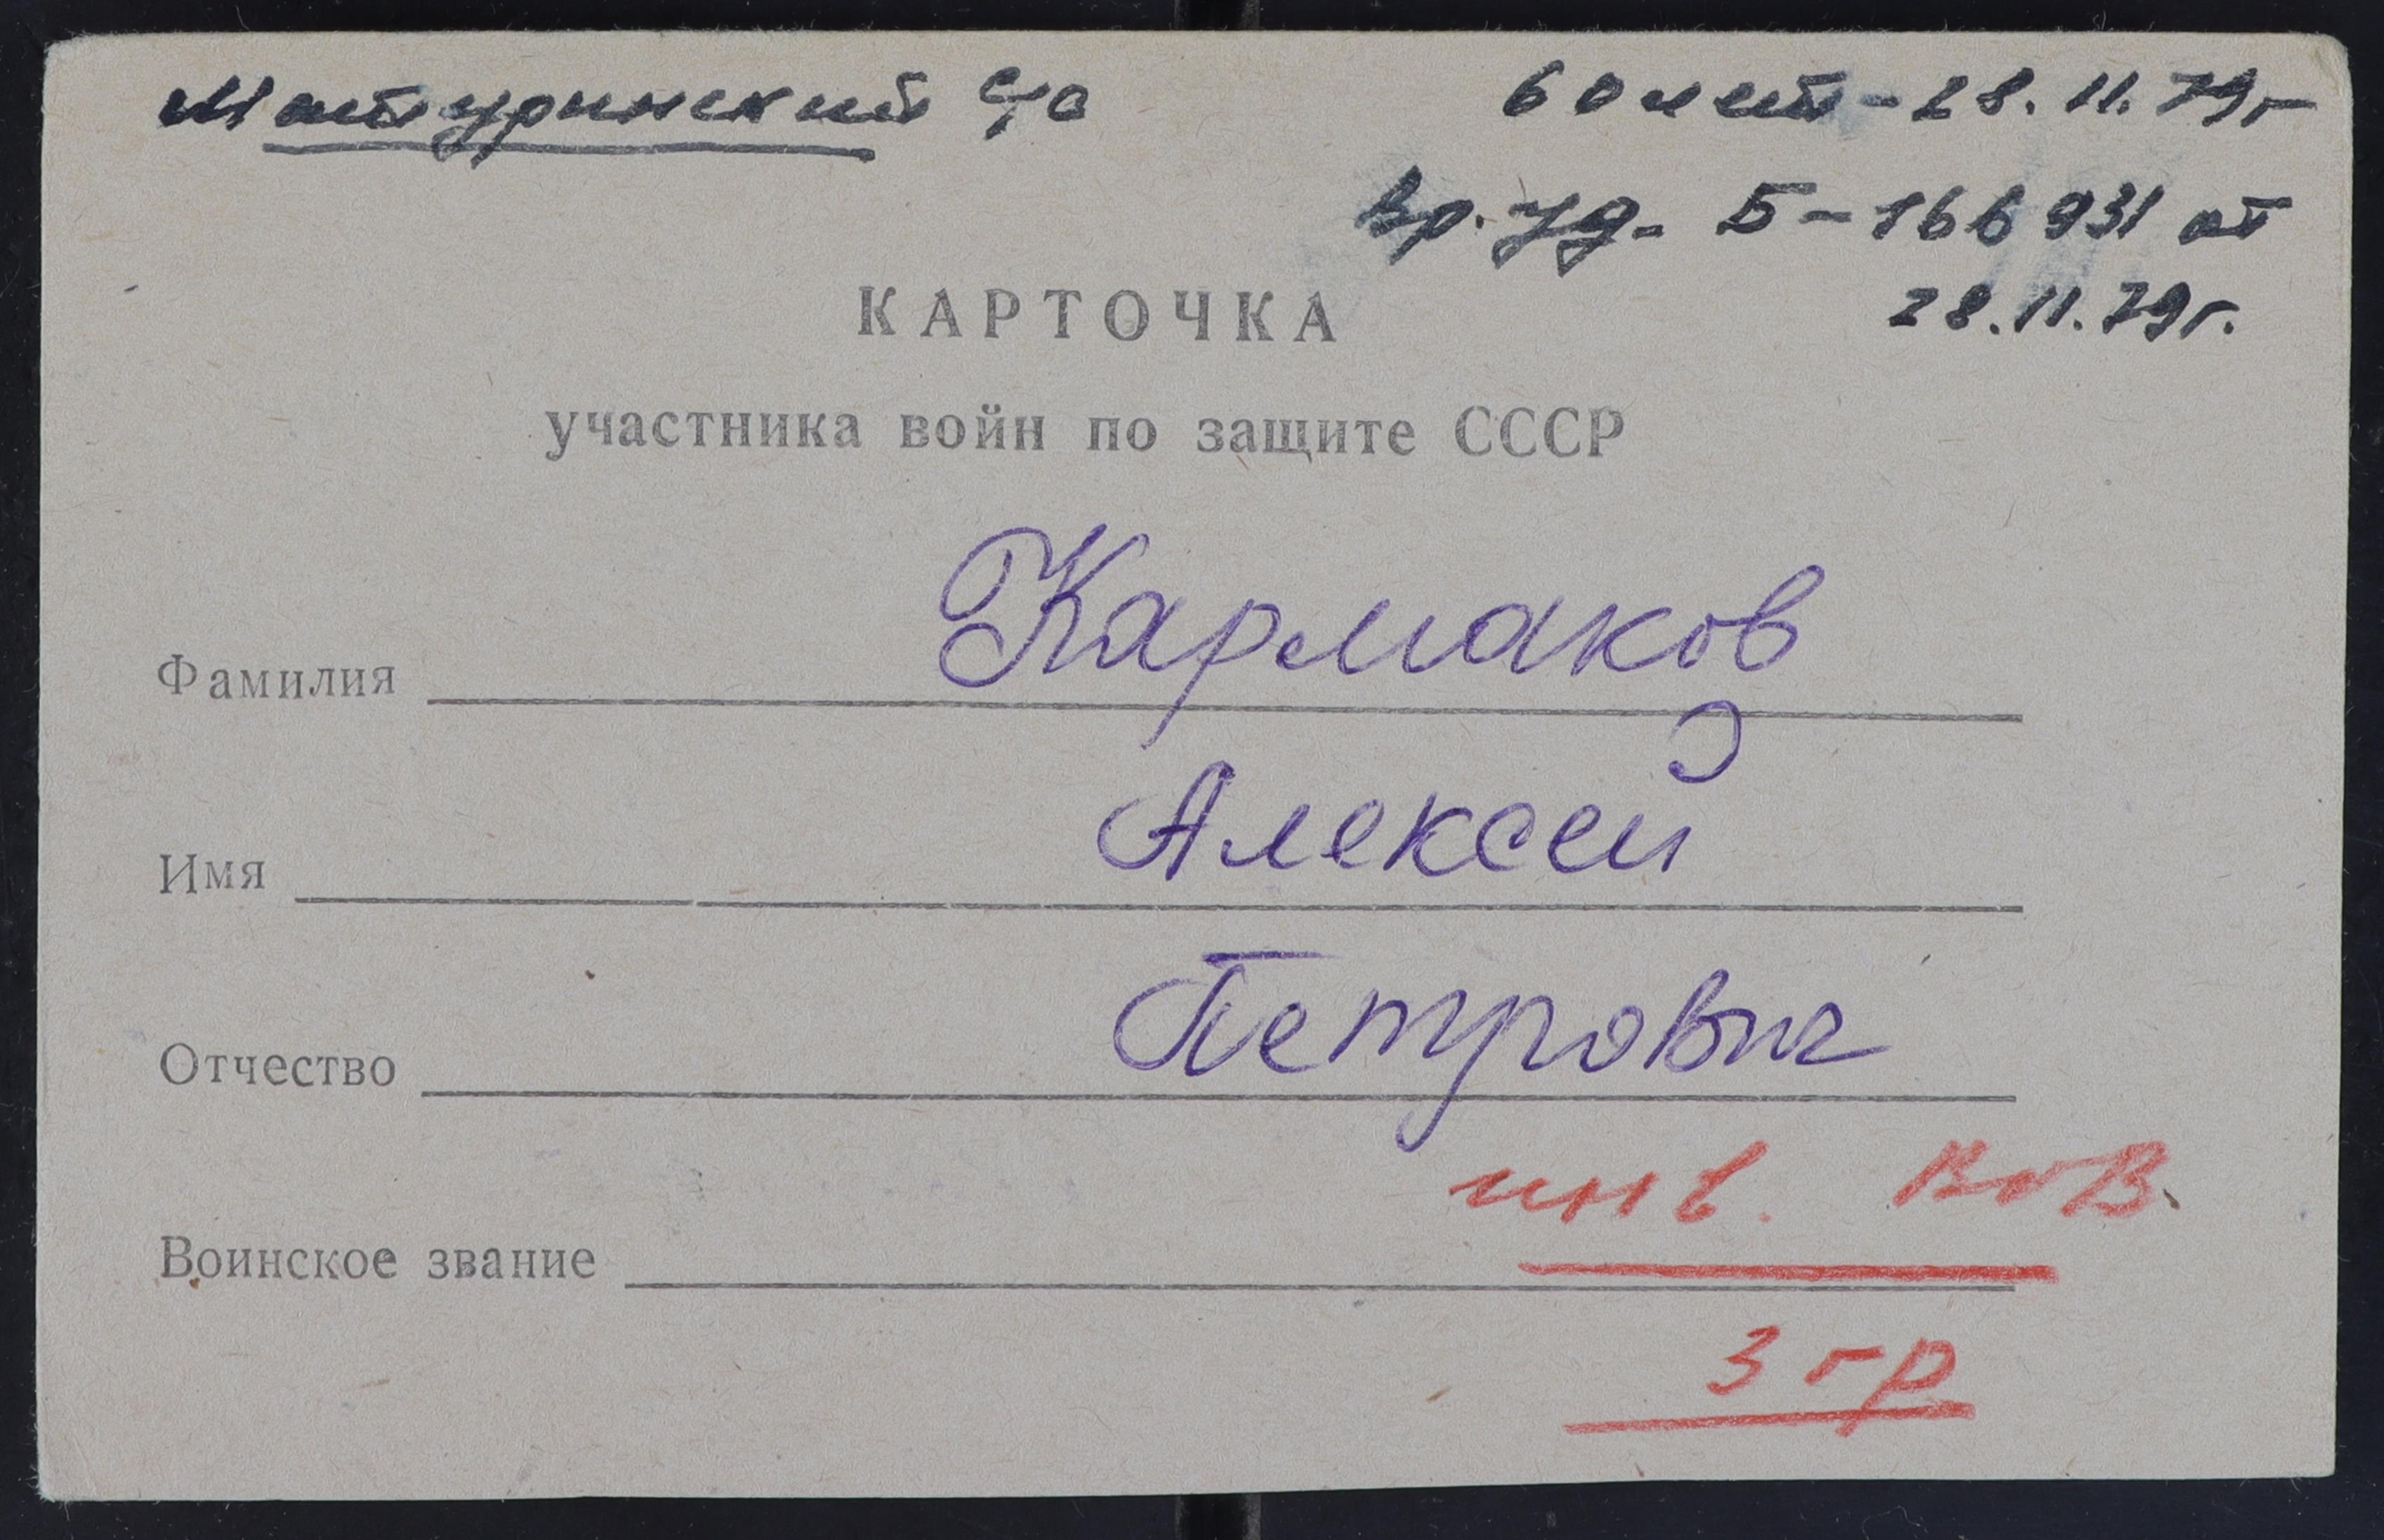 Матуринский с/с
60 лет - 28.11.79г
Вр. уд. Б-166931 от
28.11.79г.
КАРТОЧКА
участника войн по защите СССР
Фамилия Кармаков
Имя Алексей
Отчество Петрович
инв. ВОВ.
Воинское звание
3 гр